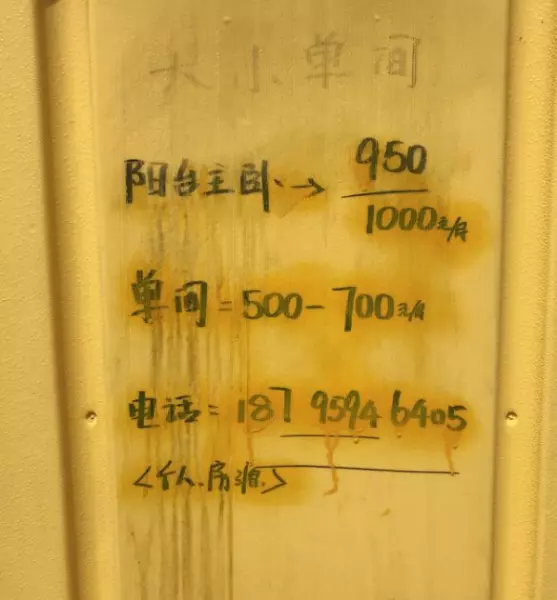 大小单间
阳台主卧 → 950
1000元/月
单间 = 500 - 700元/月
电话 = 187 9594 6405
<个人.房源.>